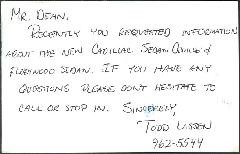 MR. DEAN.
RECENTLY YOU REQUESTED INFORMATION
ABOUT THE NEW CADILLAC SEDAN DEVILLE &
FLEETWOOD SEDAN. IF YOU HAVE ANY
QUESTIONS PLEASE DON'T HESITATE TO
CALL OR STOP IN. SINCERELY,
TODD
962-5544